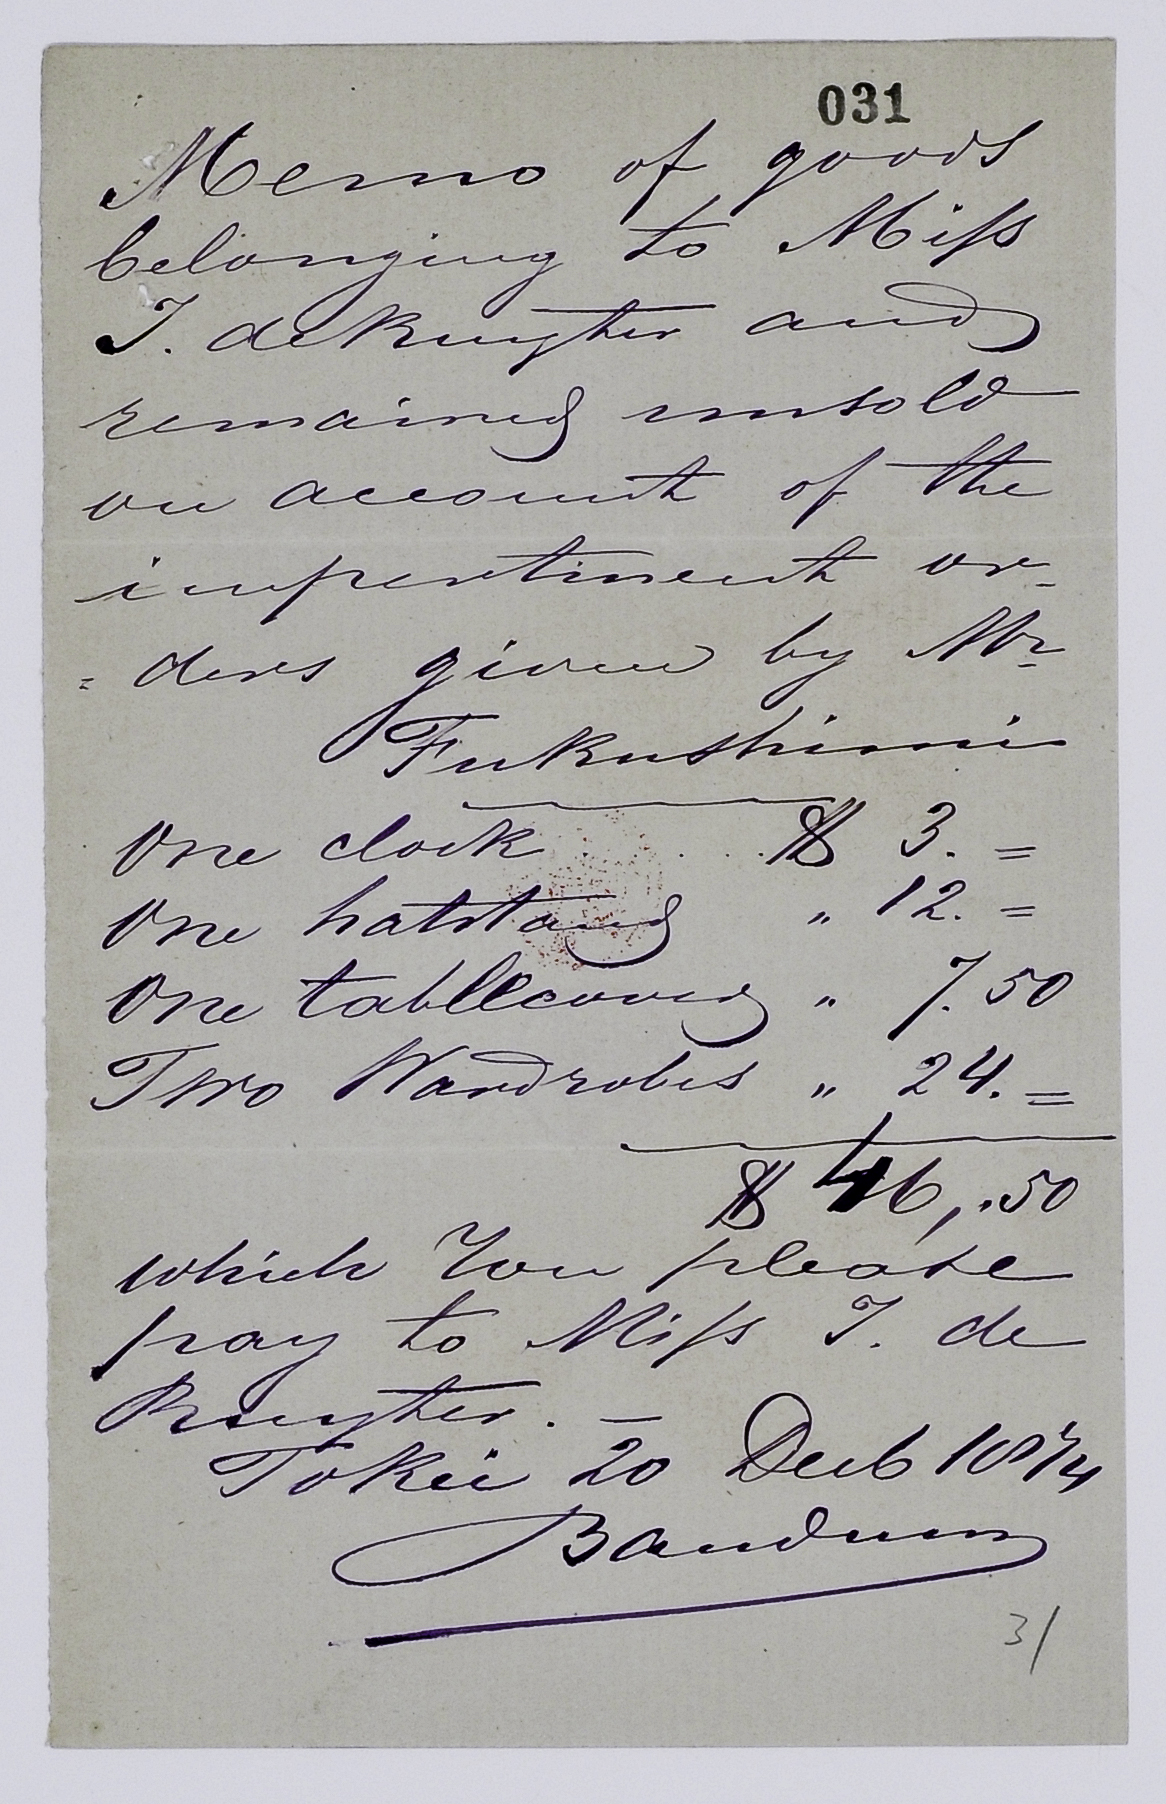 031
Memo of goods
belonging to Miss
J. de Ruyter and
remained unsold
on account of the
impertinent or-
=ders given by Mr
Fukushima
One clock . . . . $ 3. =
One hatstand " 12. =
One tablecover " 7.50
Two Wardrobes " 24. =
$ 46,.50
which You please
pay to Miss J. de
Ruyter. —
Tokei 20 Decb 1874
Bauduin
31